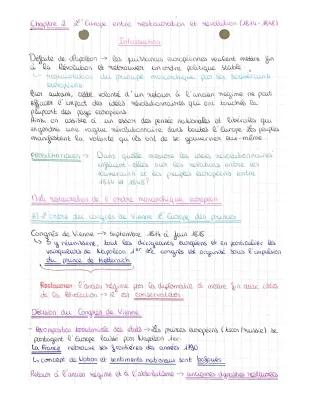 Chapitre 2 : L'Europe entre restauration et révolution (1814-1848)
Introduction
Défaite de Napoléon → les puissances européennes veulent mettre fin
à la Révolution et retrouver un ordre politique stable
↳ restauration du principe monarchique par les souverains
européens
Pour autant, cette volonté d'un retour à l'ancien régime ne peut
effacer l'impact des idées révolutionnaires qui ont touchés la
plupart des pays européens
Ainsi on assiste à un essor des pensée nationales et libérales qui
engendre une vague révolutionnaire dans toute l'Europe. Les peuples
manifestent la volonté qu'ils ont de se gouverner eux-même
PROBLÉMATIQUE → Dans quelle mesure les idées révolutionnaires
influent-elles sur les relations entre les
souverains et les peuples européens entre
1814 et 1848?
I) La restauration de l'ordre monarchique européen
A) L'ordre du congrès de Vienne : L'Europe des princes
Congrès de Vienne → septembre 1814 à juin 1815
↳ s'y réunissent, tout les dirigeants européens et en particulier les
vainqueurs de Napoléon 1er. Le congrès est organisé sous l'impulsion
du prince de Metternich
Restaurer l'ancien régime par la diplomatie et mettre fin aux idées
de la Révolution → il est conservateur
Décision du Congrès de Vienne
- Recomposition territoriale des états → Les princes européens (tsar/russie) se
partagent l'Europe laissé par Napoléon 1er.
La France retrouve ses frontières des années 1790
↳ concept de Nation et sentiments nationaux sont bafoués
Retour à l'ancien régime et à l'absolutisme → anciennes dynasties restaurées